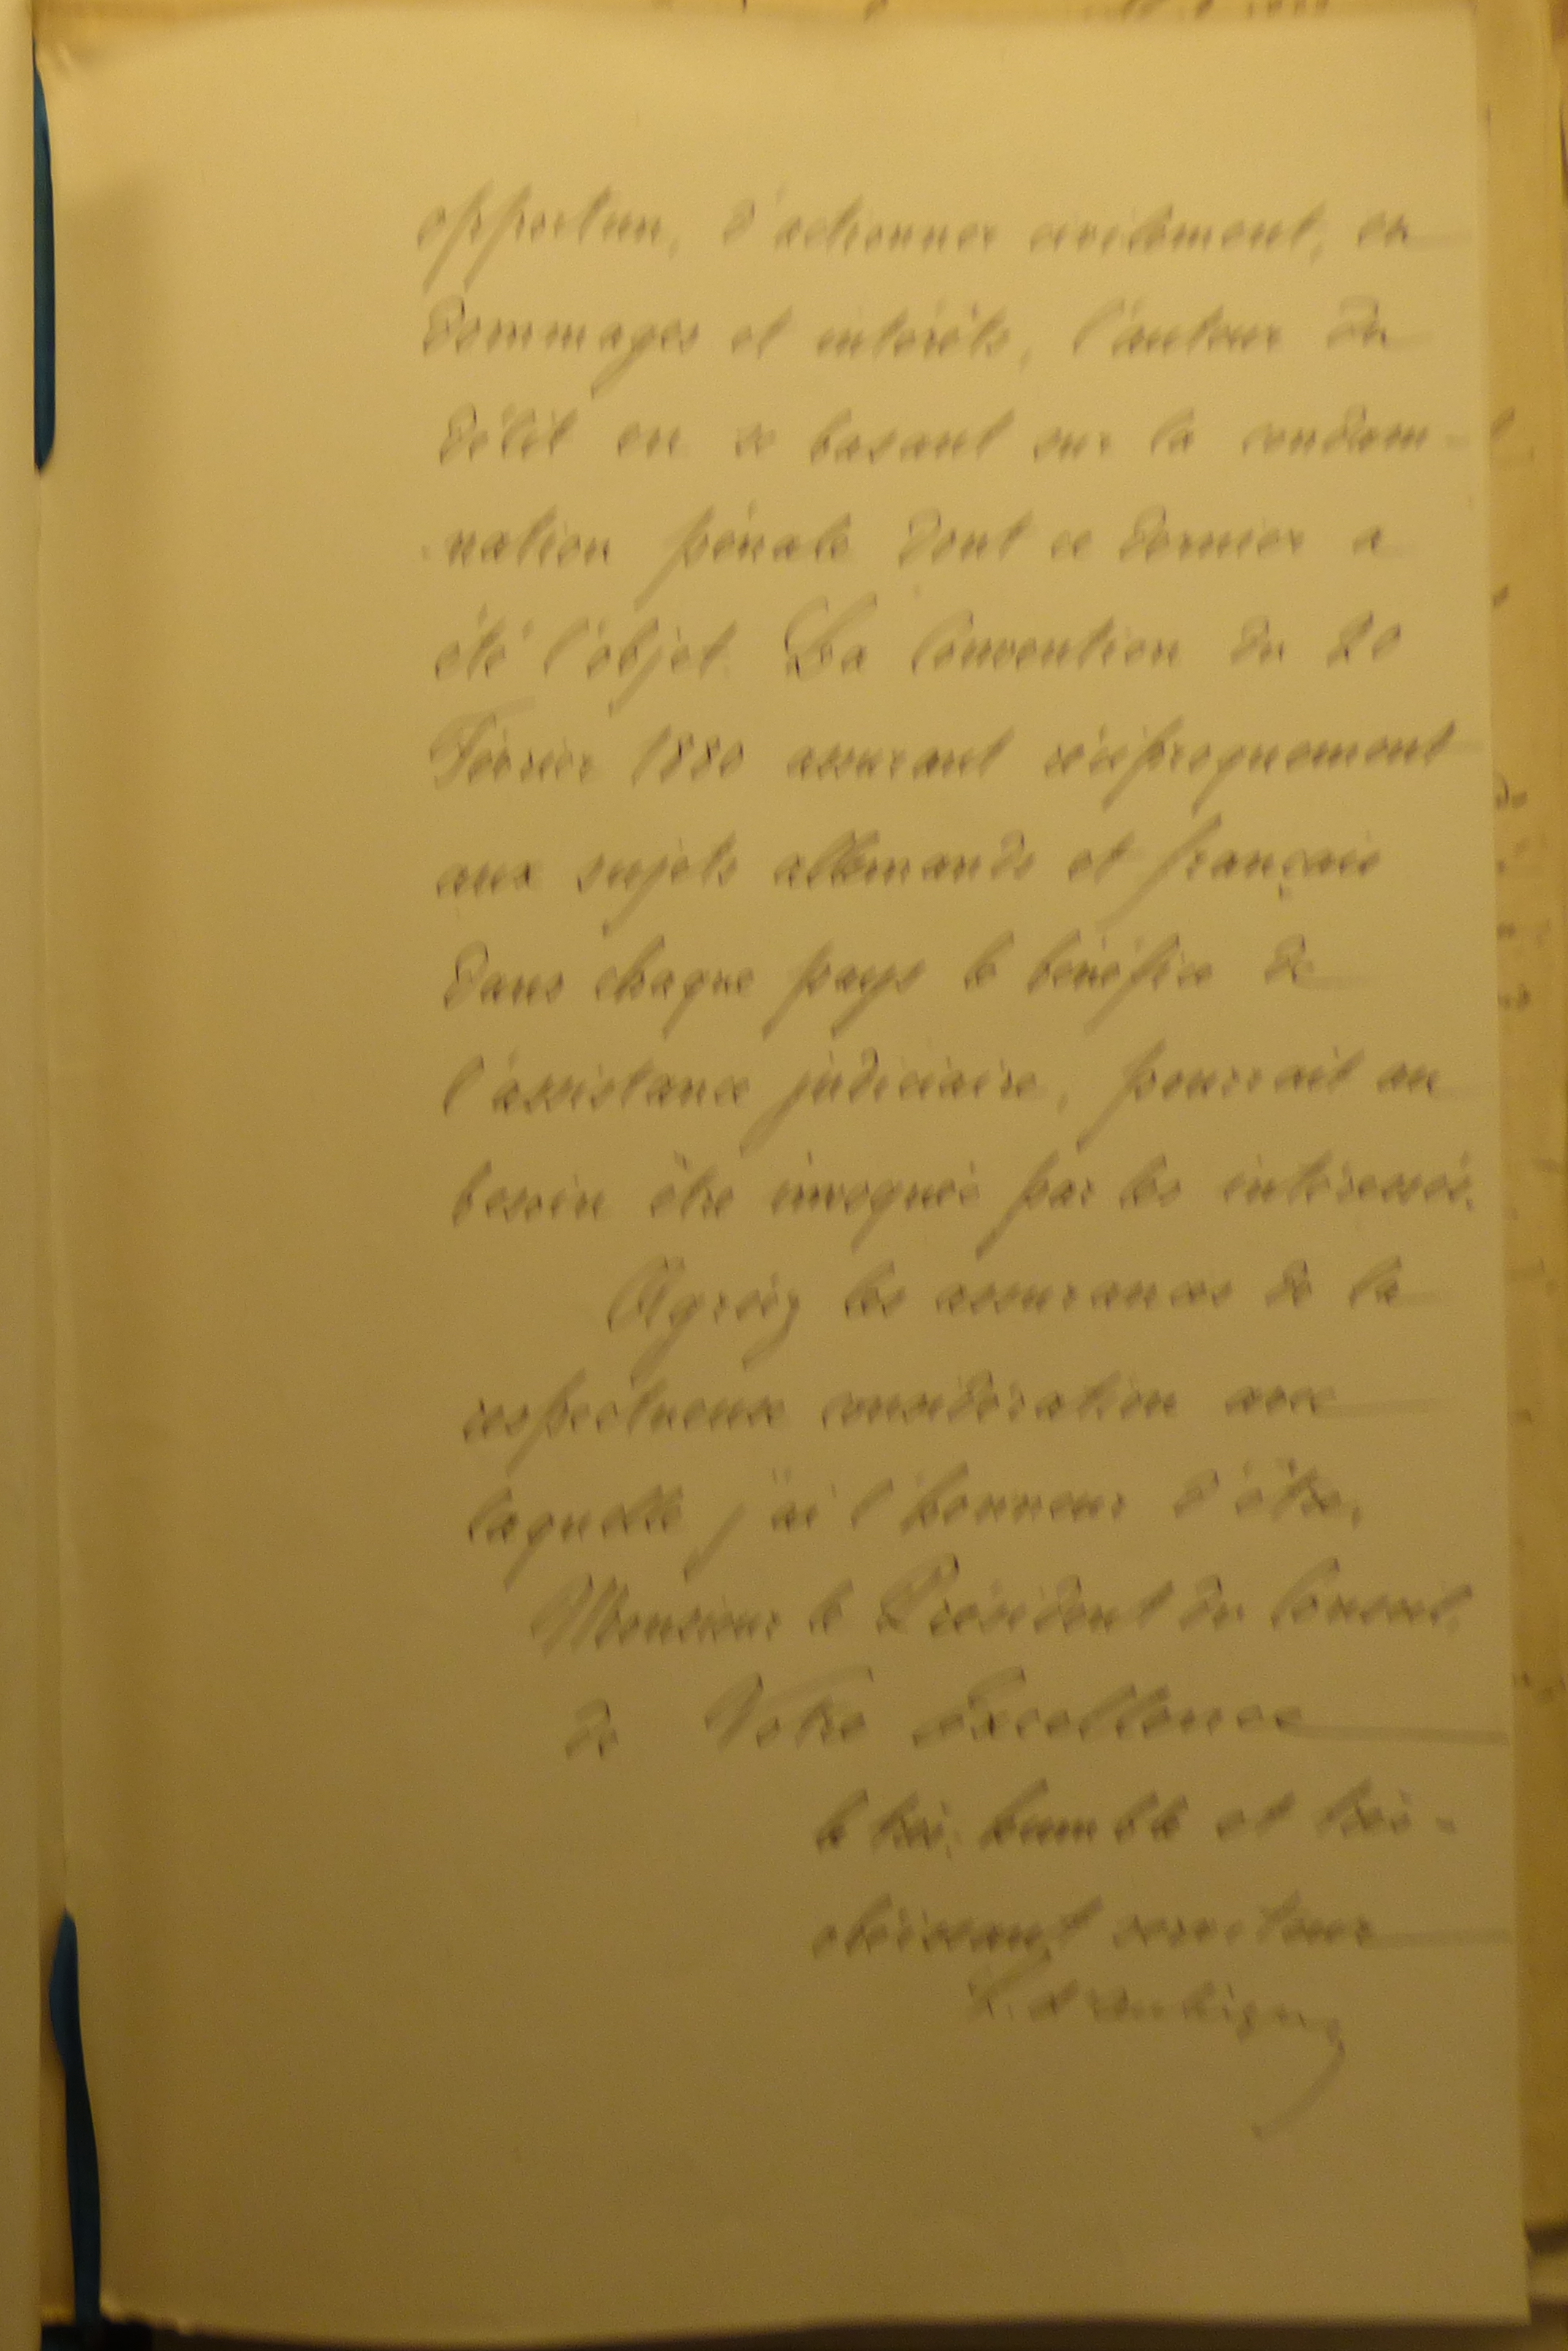 opportun, d'actionner civilement, en
dommages et intérêts, l'auteur du
délit en se basant sur la condam-
nation pénale dont ce dernier a
été l'objet. La Convention du 20
Février 1880 assurant réciproquement
aux sujets allemands et français
dans chaque pays le bénéfice de
l'assistance judiciaire, pourrait au
besoin être invoquée par les intéressés.
Agréez les assurances de la
respectueuse considération avec
laquelle j'ai l'honneur d'être,
Monsieur le Président du Conseil,
de Votre Excellence
le très humble et très-
obéissant serviteur